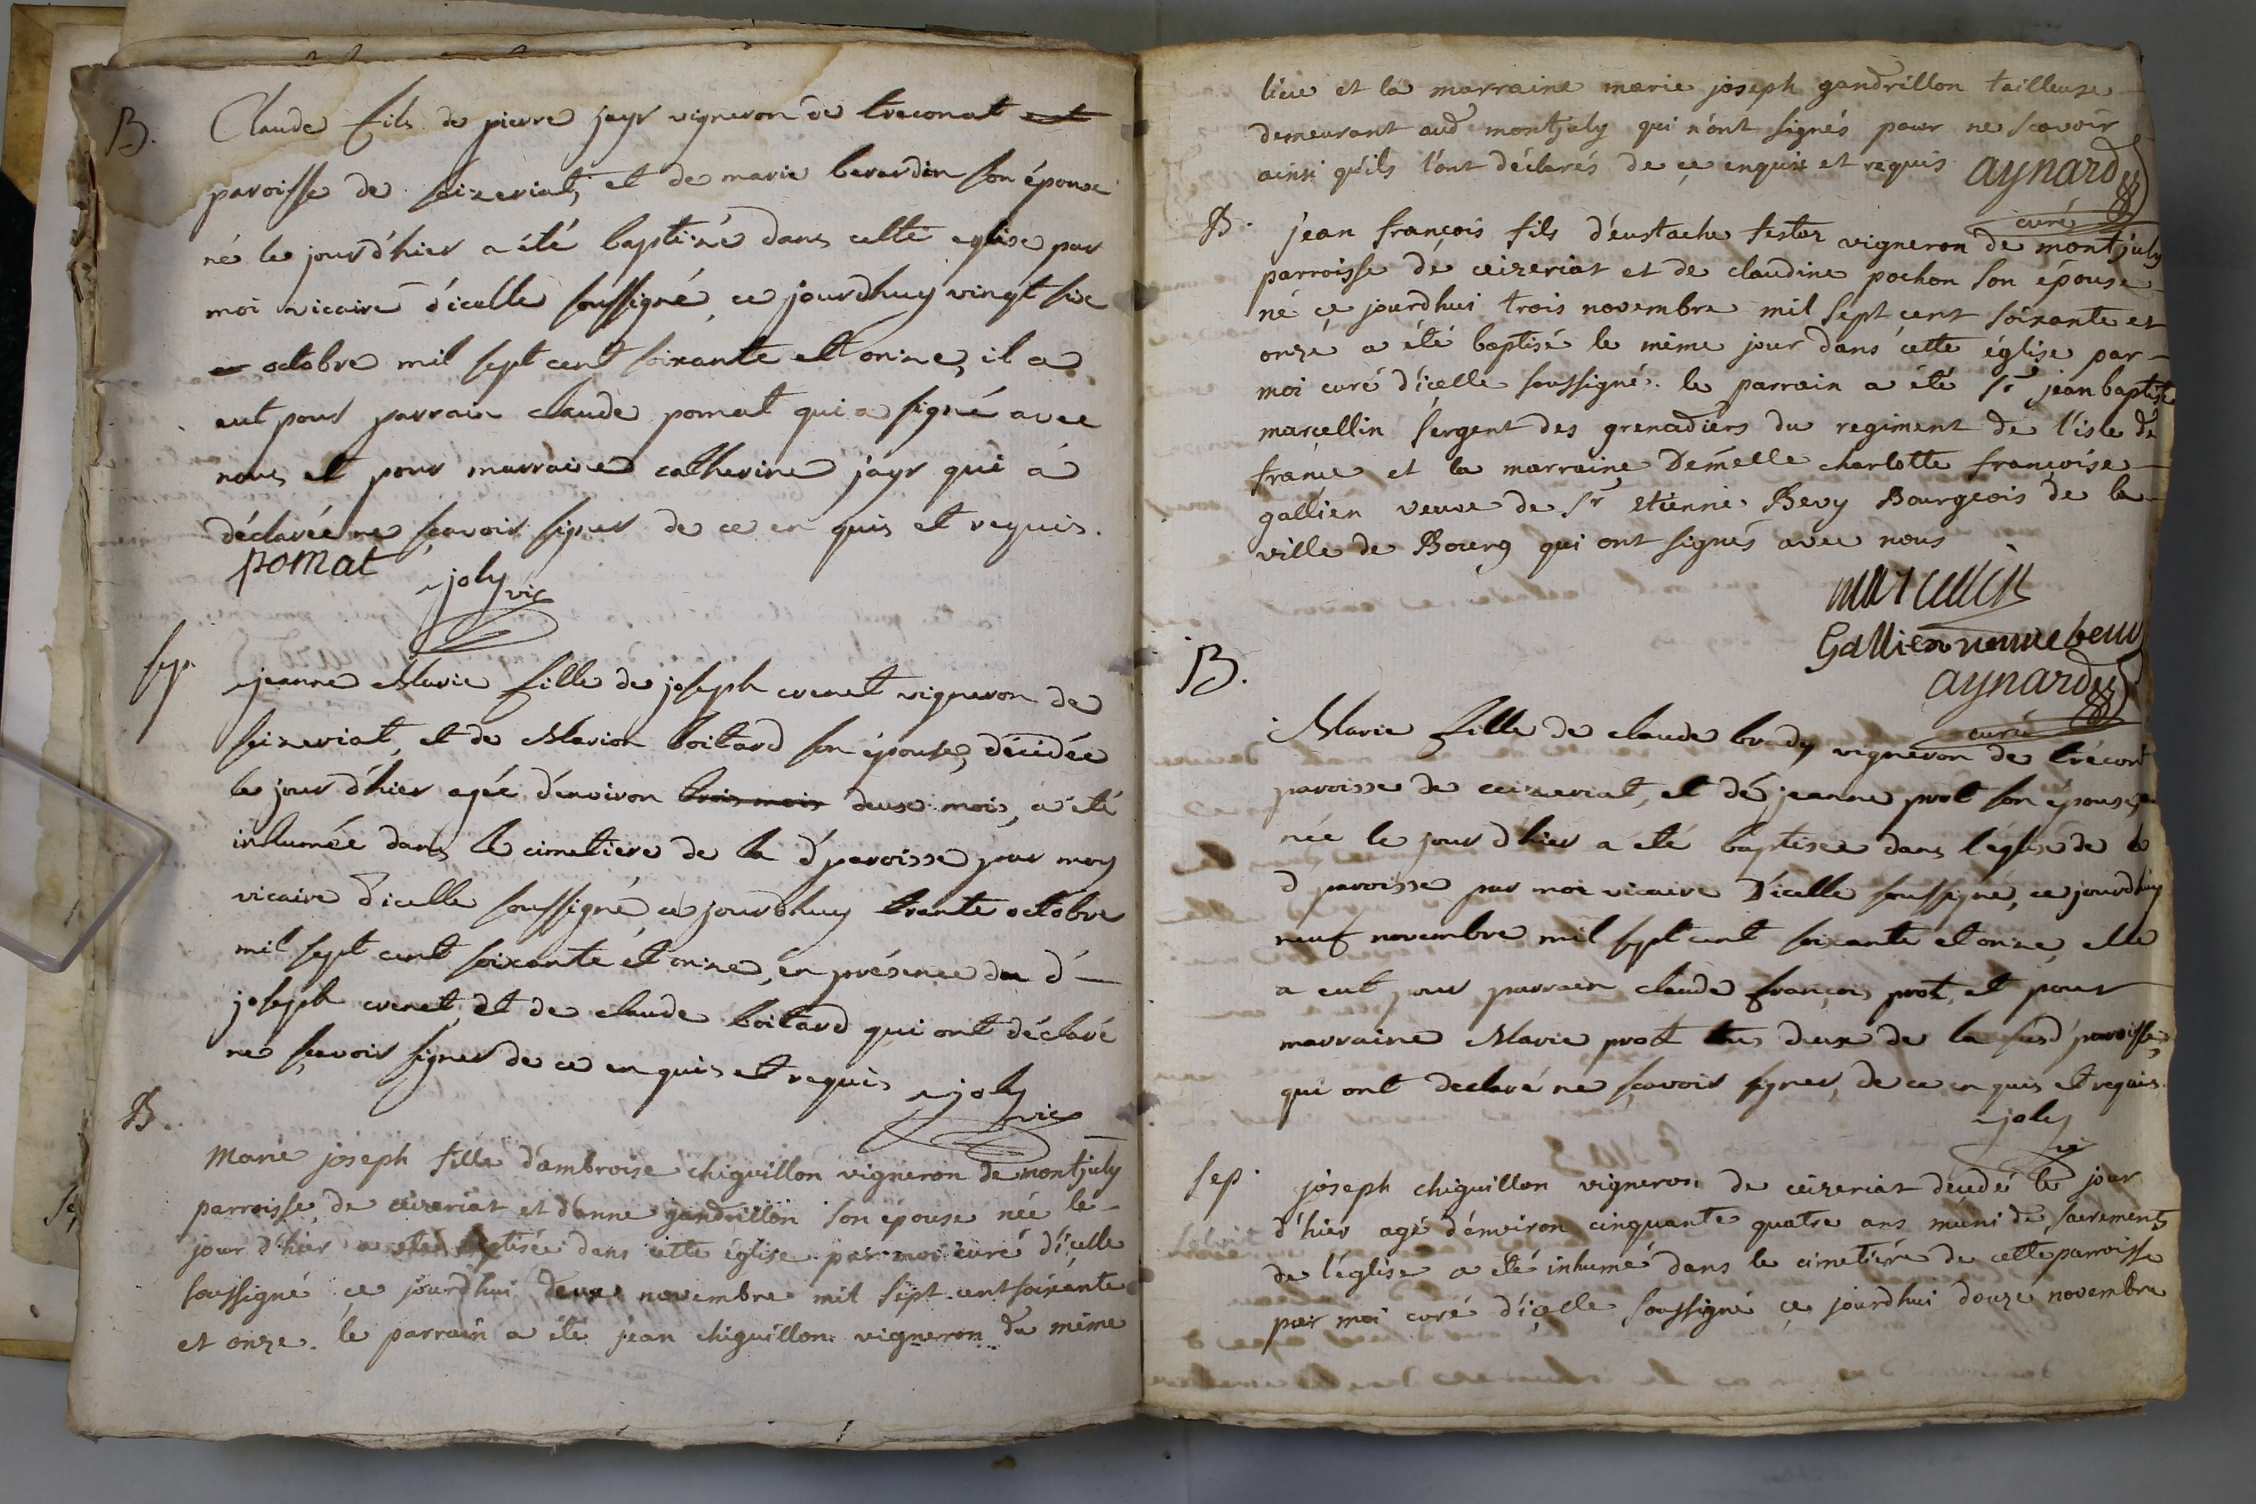 B.
Claude fils de pierre jayr vigneron de treconat
paroisse de seizeriat, et de marie berardin son épouse
né le jour d'hier a été baptisé dans cette eglise par
moi vicaire d'icelle soussigné, ce jourdhuy vingt six
octobre mil sept cent soixante et onze, il a
eut pour parrain claude pomat qui a signé avec
nous et pour marraine catherine jayr qui a
déclarée ne sçavoir signer de ce en quis et requis.
pomat joly vic
sep.
jeanne Marie fille de joseph crenet vigneron de
seizeriat, et de Marion boitard son épouse, décédée
le jour d'hier agée d'environ trois mois deux mois, a été
inhumée dans le cimetiere de la d' paroisse par moy
vicaire d'icelle soussigné, ce jourdhuy trente octobre
mil sept cent soixante et onze, en présence du d'
joseph crenet, et de claude boitard qui ont déclaré
ne sçavoir signer de ce en quis et requis joly
vic
B.
Marie joseph fille d'ambroise chiguillon vigneron de montjuly
parroisse de ceizeriat et d'anne gandrillon son épouse née le
jour d'hier a été baptisée dans cette église par moi curé d'icelle
soussigné ce jourdhui deux novembre mil sept cent soixante
et onze. le parrain a été jean chiguillon vigneron du même
lieu et la marraine marie joseph gandrillon tailleuse
demeurant aud montjuly qui n'ont signés pour ne scavoir
ainsi qu'ils l'ont déclarés de ce enquis et requis aynard
curé
B. jean françois fils d'eustache festaz vigneron de montjuly
parroisse de ceizeriat et de claudine pochon son épouse
né ce jourdhui trois novembre mil sept cent soixante et
onze a été baptisé le même jour dans cette église par
moi curé d'icelle soussigné. le parrain a été Sr jean baptiste
marcellin sergent des grenadiers du regiment de l'isle de
france et la marraine Demelle charlotte françoise
gallien veuve de Sr etienne Bevy Bourgeois de la
ville de Bourg qui ont signés avec nous
marcellin
Gallien veuve bevy
aynard
curé
B.
Marie fille de claude brody vigneron de trécont
paroisse de ceizeriat, et de jeanne prot son épouse,
née le jour d'hier a été baptisée dans l'église de la
d' paroisse par moi vicaire d'icelle soussigné, ce jourdhuy
neuf novembre mil sept cent soixante et onze, elle
a eut pour parrain claude françois prot, et pour
marraine Marie prot tus deux de la susd' paroisse,
qui ont declaré ne sçavoir signer, de ce en quis et requis.
joly
vic
sep. joseph chiguillon vigneron de ceizeriat décédé le jour
d'hier agé d'environ cinquante quatre ans muni de sacrements
de l'église a été inhumé dans le cimetiére de cette parroisse
par moi curé d'icelle soussigné ce jourdhui douze novembre